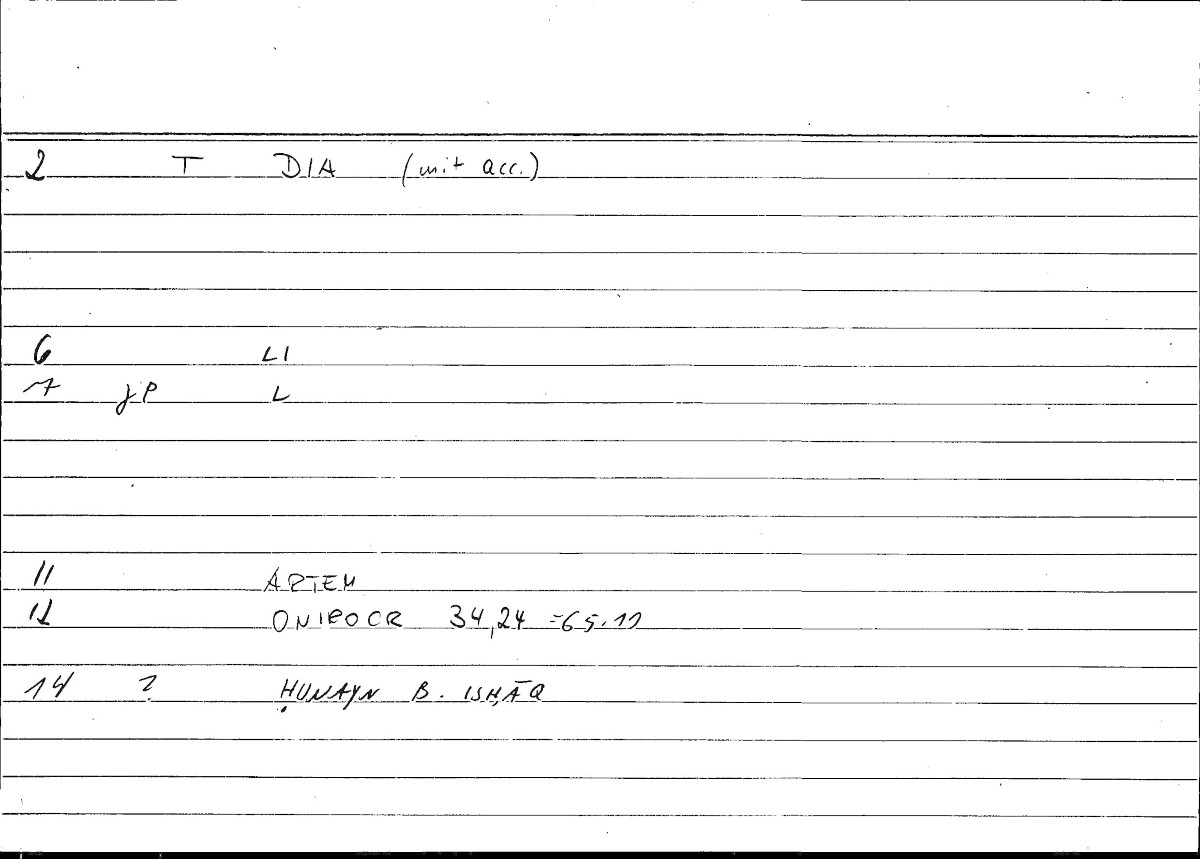 2 T DIA (mit acc.)
6 LI
7 jP L
11 ARTEM
12 ONIROCR 34,24 =65.11
14 ? ḤUNAYN B. ISḤĀQ